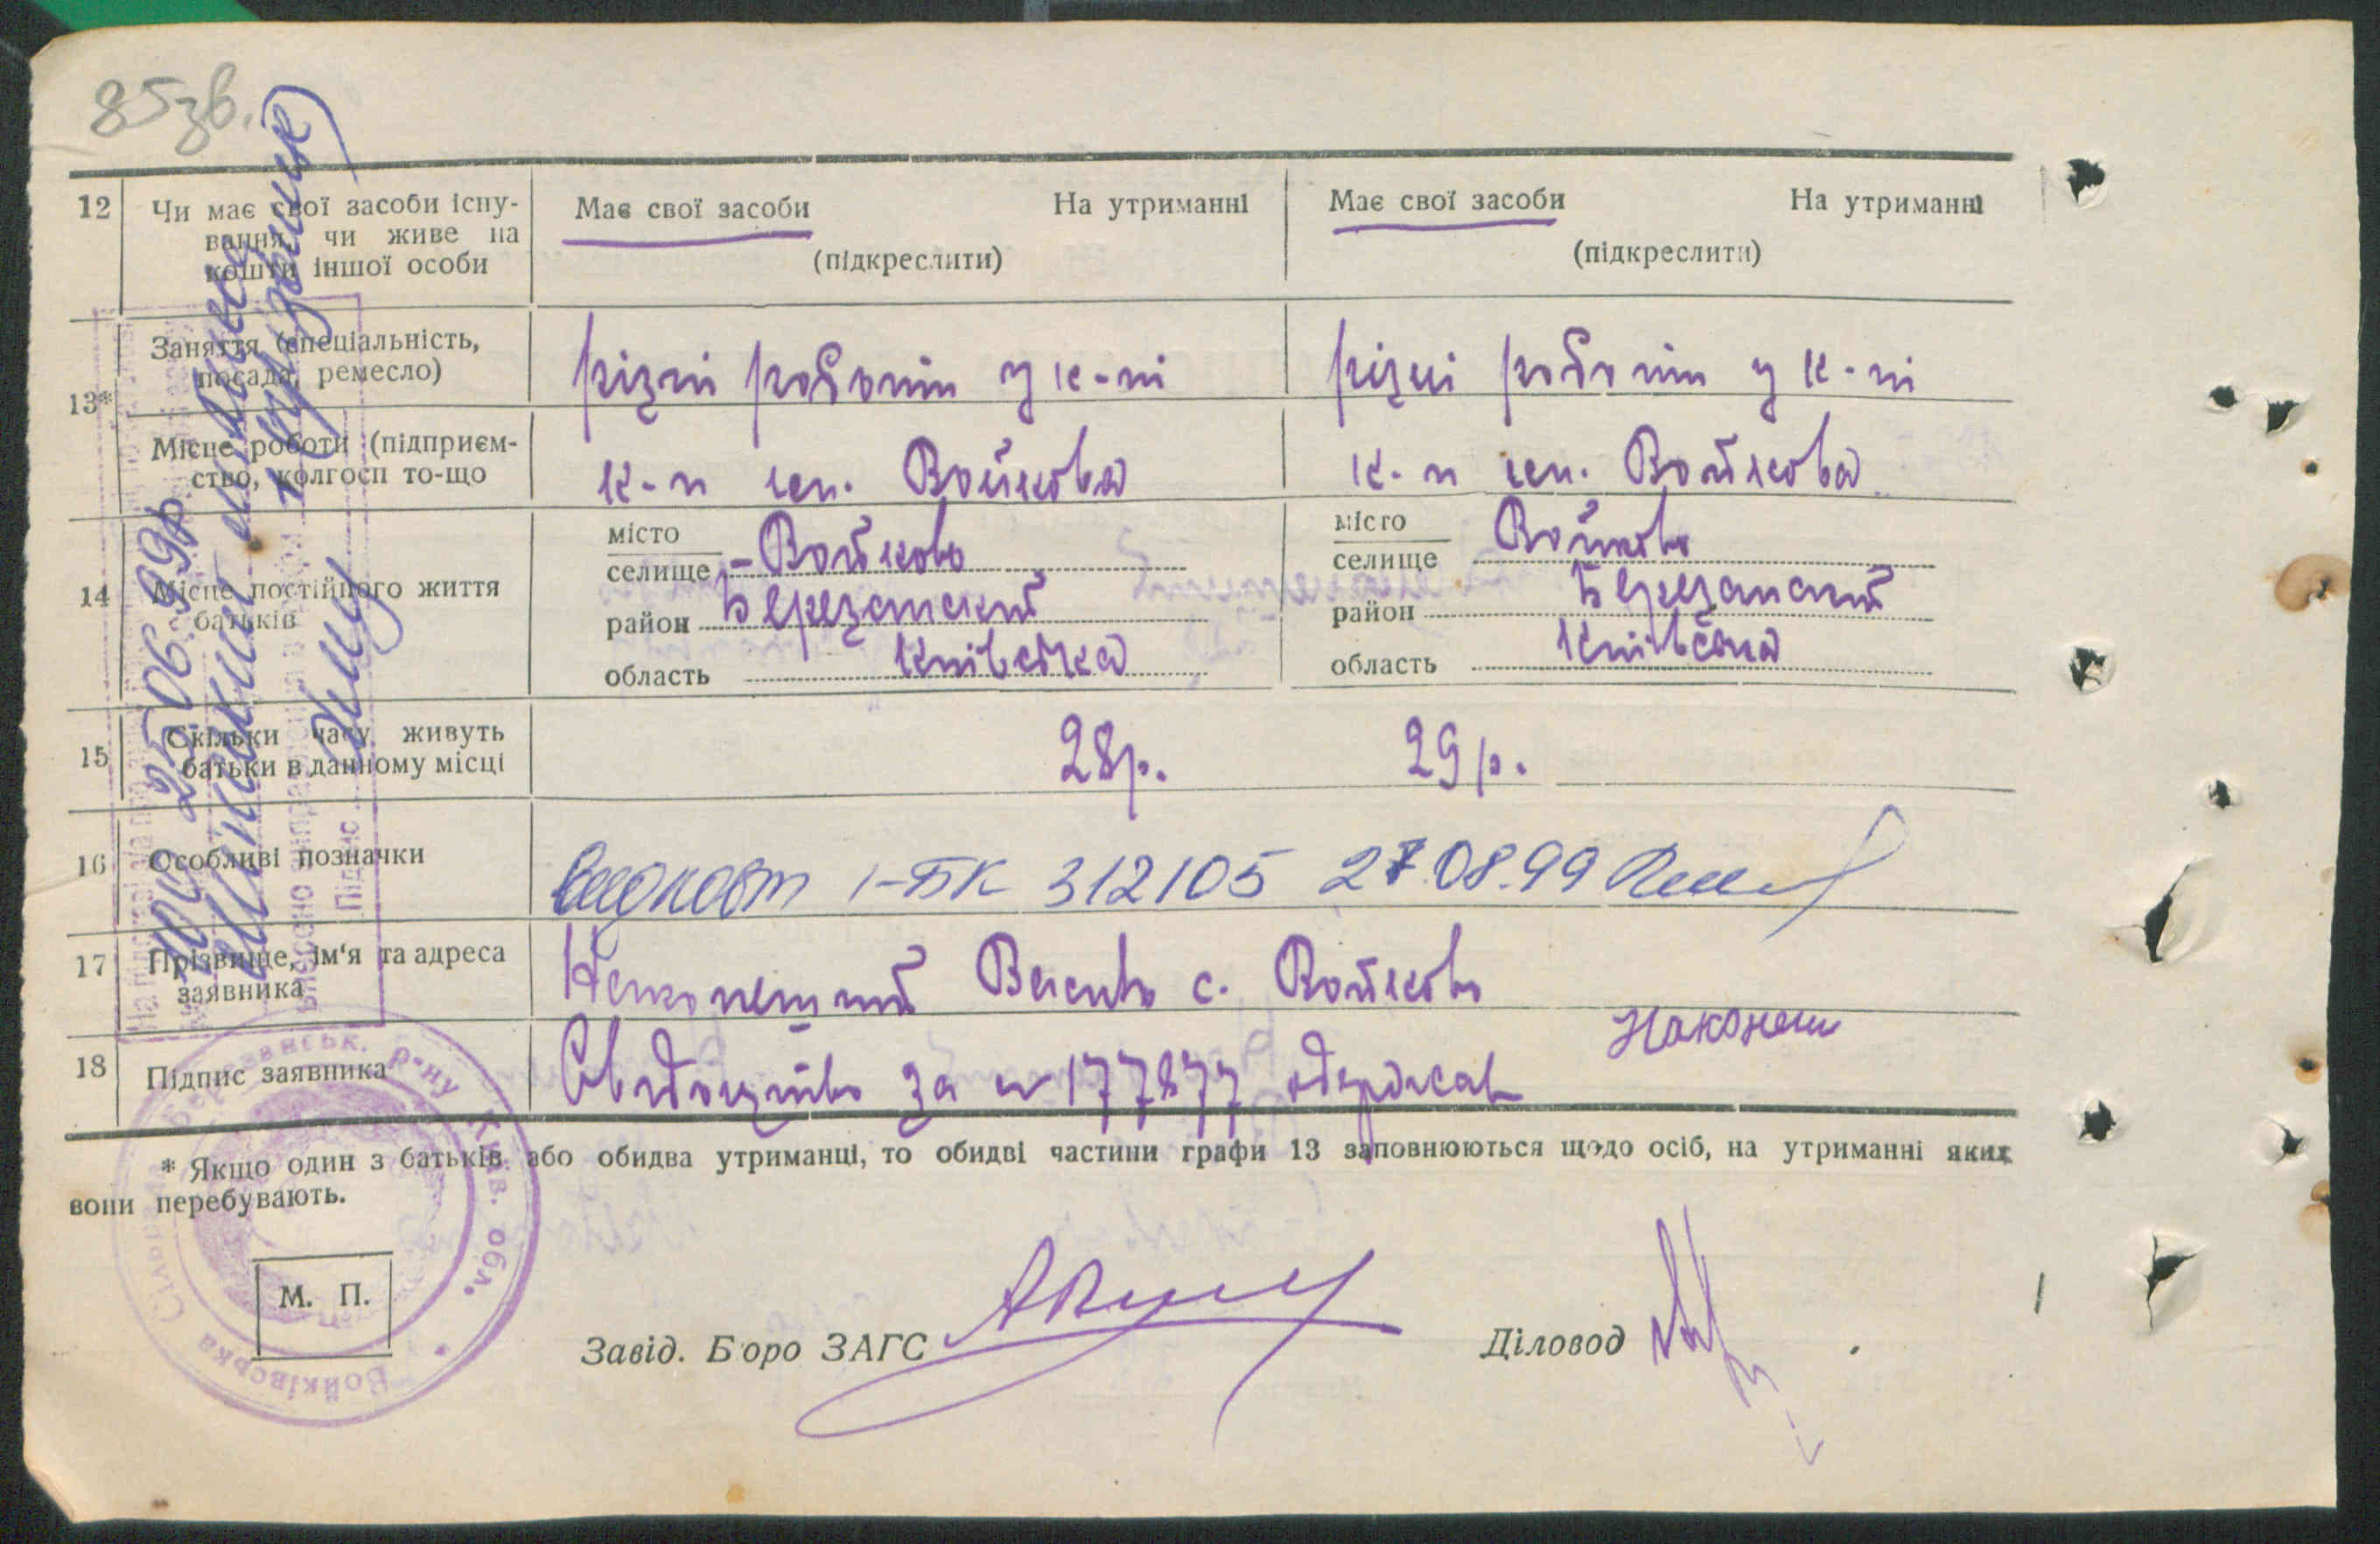 85зв.
12 Чи має свої засоби існу-
вання, чи живе на
кошти іншої особи
Має свої засоби На утриманні
(підкреслити)
Має свої засоби На утриманні
(підкреслити)
13*
Заняття (спеціальність,
посада, ремесло)
різні роботи у к-пі
різні роботи у к-пі
Місце роботи (підприєм-
ство, колгосп то-що
к-п ім. Войкова
к-п ім. Войкова
14 Місце постійного життя
батьків
місто
селище Войково
район Березанский
область Київська
місто
селище Войково
район Березанский
область Київська
15 Скільки часу живуть
батьки в данному місці
28р. 29р.
16 Особливі позначки
I-БК 312105 27.08.99
17 Прізвище, ім'я та адреса
заявника
с. Войково
18 Підпис заявника
Свідоцтво за № 177877 одержав
Наконеш
* Якщо один з батьків або обидва утриманці, то обидві частини графи 13 заповнюються щодо осіб, на утриманні яких
вони перебувають.
М. П.
Завід. Бюро ЗАГС
Діловод
25.06.99р
Підпис
Войківська Сільрада Березанськ. р-ну Київ. обл.